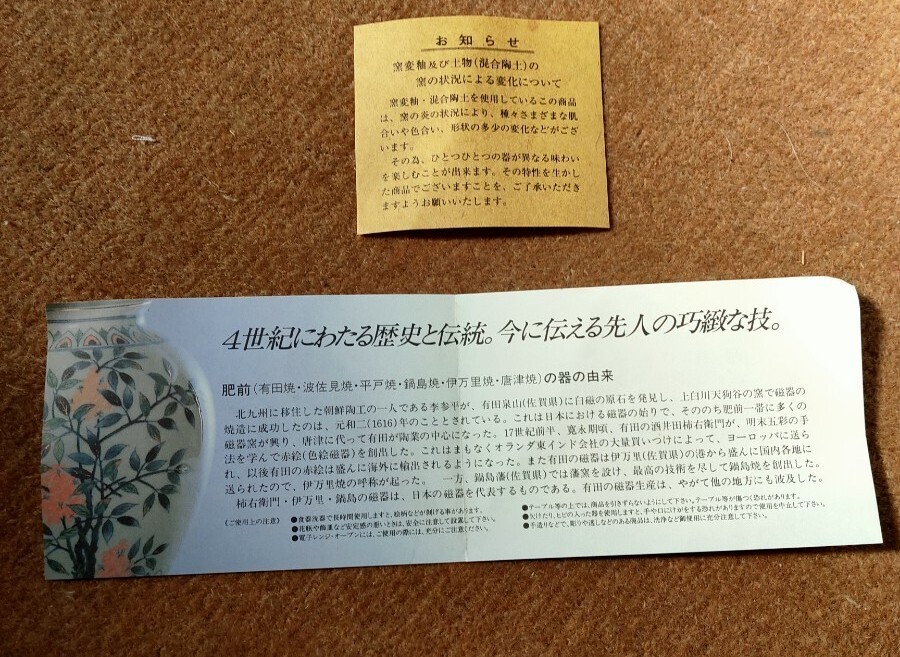 お知らせ
窯変釉及び土物(混合陶土)の
窯の状況による変化について
窯変釉・混合陶土を使用しているこの商品
は、窯の炎の状況により、種々さまざまな肌
合いや色合い、形状の多少の変化などがござ
います。
その為、ひとつひとつの器が異なる味わい
を楽しむことが出来ます。その特性を生かし
た商品でございますことを、ご了承いただき
ますようお願いいたします。
4世紀にわたる歴史と伝統。今に伝える先人の巧緻な技。
肥前(有田焼・波佐見焼・平戸焼・鍋島焼・伊万里焼・唐津焼)の器の由来
北九州に移住した朝鮮陶工の一人である李参平が、有田泉山(佐賀県)に白磁の原石を発見し、上白川天狗谷の窯で磁器の
焼造に成功したのは、元和二(1616)年のこととされている。これは日本における磁器の始りで、そののち肥前一帯に多くの
磁器窯が興り、唐津に代って有田が陶業の中心になった。17世紀前半、寛永期頃、有田の酒井田柿右衛門が、明末五彩の手
法を学んで赤絵(色絵磁器)を創出した。これはまもなくオランダ東インド会社の大量買いつけによって、ヨーロッパに送ら
れ、以後有田の赤絵は盛んに海外に輸出されるようになった。また有田の磁器は伊万里(佐賀県)の港から盛んに国内各地に
送られたので、伊万里焼の呼称が起った。 一方、鍋島藩(佐賀県)では藩窯を設け、最高の技術を尽して鍋島焼を創出した。
柿右衛門・伊万里・鍋島の磁器は、日本の磁器を代表するものである。有田の磁器生産は、やがて他の地方にも波及した。
〈ご使用上の注意〉
●食器洗器で長時間使用しますと、絵柄などが剥げる事があります。
●花瓶や飾皿など安定感の悪いときは、安全に注意して設置して下さい。
●電子レンジ・オーブンには、ご使用の際には、充分にご注意ください。
●テーブル等の上では、商品を引きずらないようにして下さい。テーブル等が傷つく恐れがあります。
●欠けたり、ヒビの入った器を使用しますと、手や口にけがをする恐れがありますので使用を中止して下さい。
●手造りなどで、彫りや透しなどのある商品は、洗浄など御使用に充分注意して下さい。